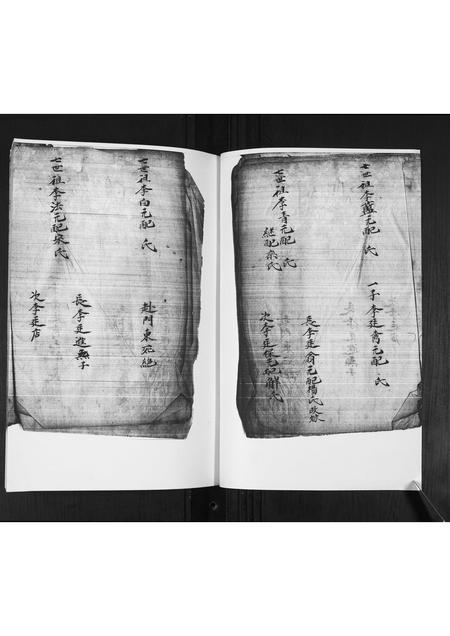 七世祖李藍元配 氏
一子 李廷喬元配 氏
七世祖李青元配 氏
繼配宋氏
長李廷俞元配楊氏改嫁
次李廷保元配解氏
七世祖李白元配 氏
赴門東死絕
七世祖李法元配宋氏
長李廷進無子
次李廷店